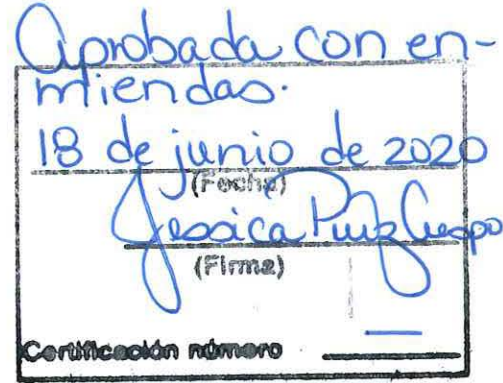 Aprobada con en-
miendas.
18 de junio de 2020
(Fecha)
Jessica Ruiz Crespo
(Firma)
Certificación número